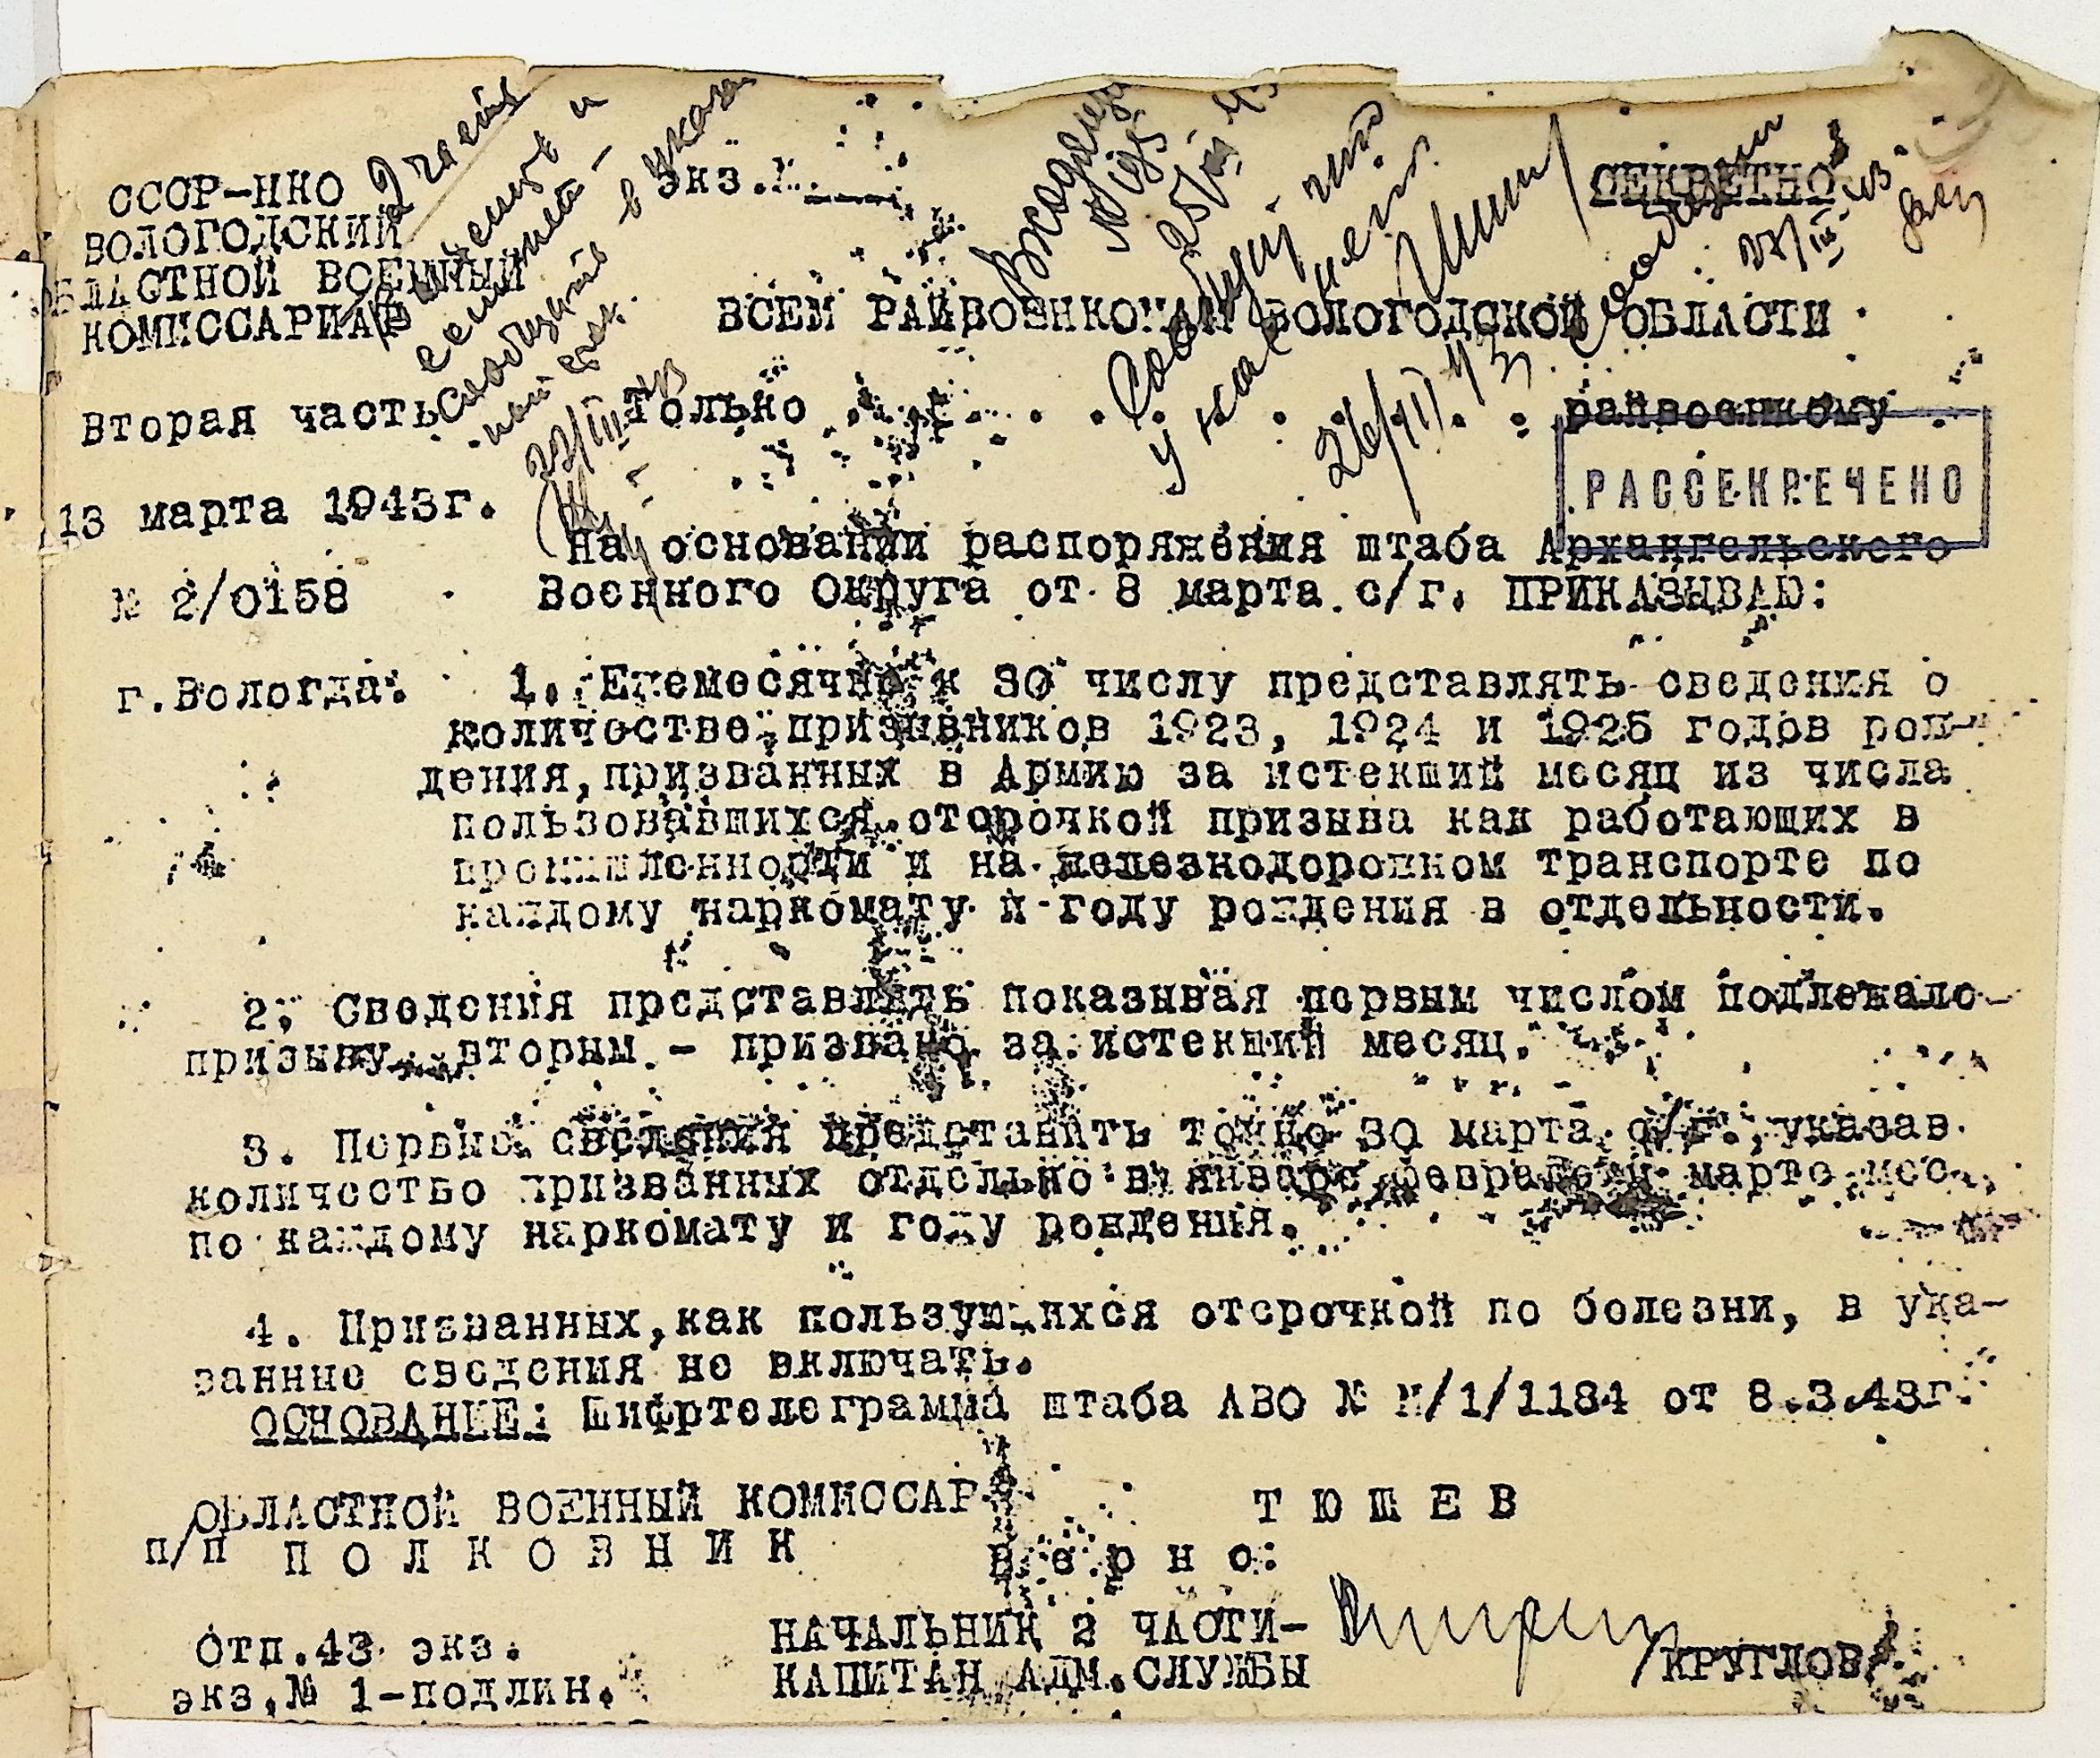 СССР-НКО
ВОЛОГОДСКИЙ
ОБЛАСТНОЙ ВОЕННЫЙ
КОМИССАРИАТ
экз.№
СЕКРЕТНО
ВСЕМ РАЙВОЕНКОМАМ ВОЛОГОДСКОЙ ОБЛАСТИ
Вторая часть
Только райвоенкому
РАССЕКРЕЧЕНО
13 марта 1943г.
№ 2/0158
г.Вологда.
2 часть
22/III 43
26/III 43
27/III 43
На основании распоряжения штаба Архангельского
Военного Округа от 8 марта с/г. ПРИКАЗЫВАЮ:
1. Ежемесячно к 30 числу представлять сведения о
количестве призывников 1923, 1924 и 1925 годов рож-
дения, призванных в Армию за истекший месяц из числа
пользовавшихся отсрочкой призыва как работающих в
промышленности и на железнодорожном транспорте по
каждому наркомату и году рождения в отдельности.
2. Сведения представлять показывая первым числом подлежало
призыву вторым - призвано за истекший месяц.
3. Первые сведения представить точно 30 марта с/г., указав
количество призванных отдельно в январе феврале и марте мес.,
по каждому наркомату и году рождения.
4. Призванных, как пользующихся отсрочкой по болезни, в ука-
занные сведения не включать.
ОСНОВАНИЕ: Шифртелеграмма штаба АВО № М/1/1184 от 8.3.43г.
ОБЛАСТНОЙ ВОЕННЫЙ КОМИССАР
п/п ПОЛКОВНИК
ТЮШЕВ
Верно:
НАЧАЛЬНИК 2 ЧАСТИ-
КАПИТАН АДМ.СЛУЖБЫ
/КРУГЛОВ/
Отп.43 экз.
экз.№ 1-подлин.